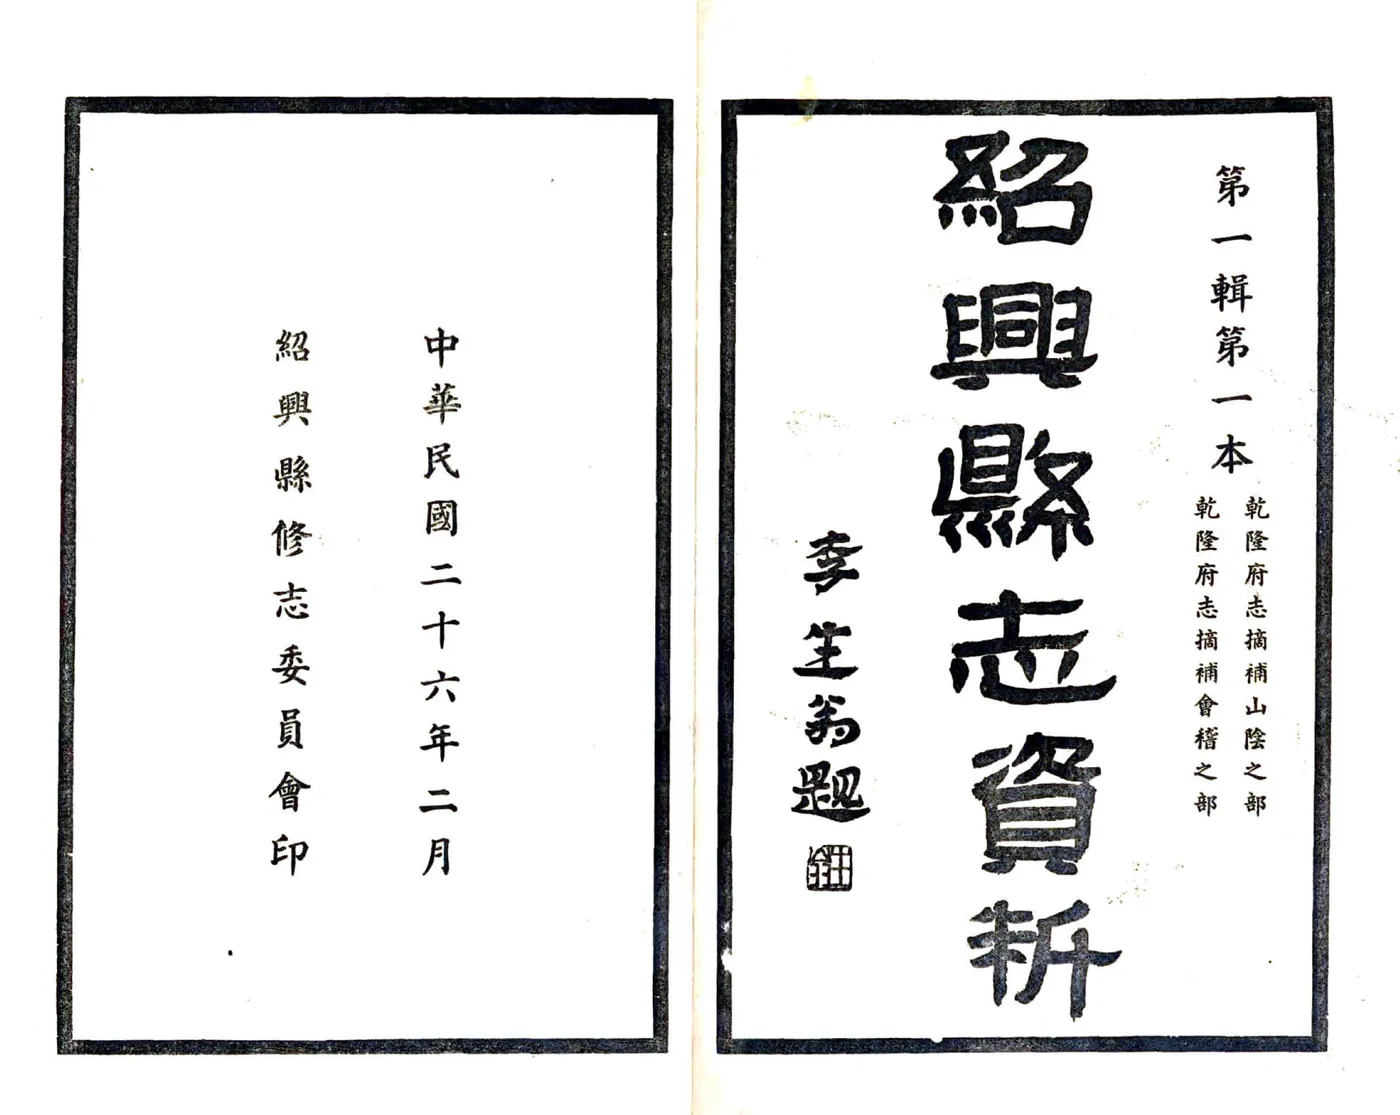 第一輯第一本
乾隆府志摘補山陰之部
乾隆府志摘補會稽之部
紹興縣志資料
李生翁題
中華民國二十六年二月
紹興縣修志委員會印